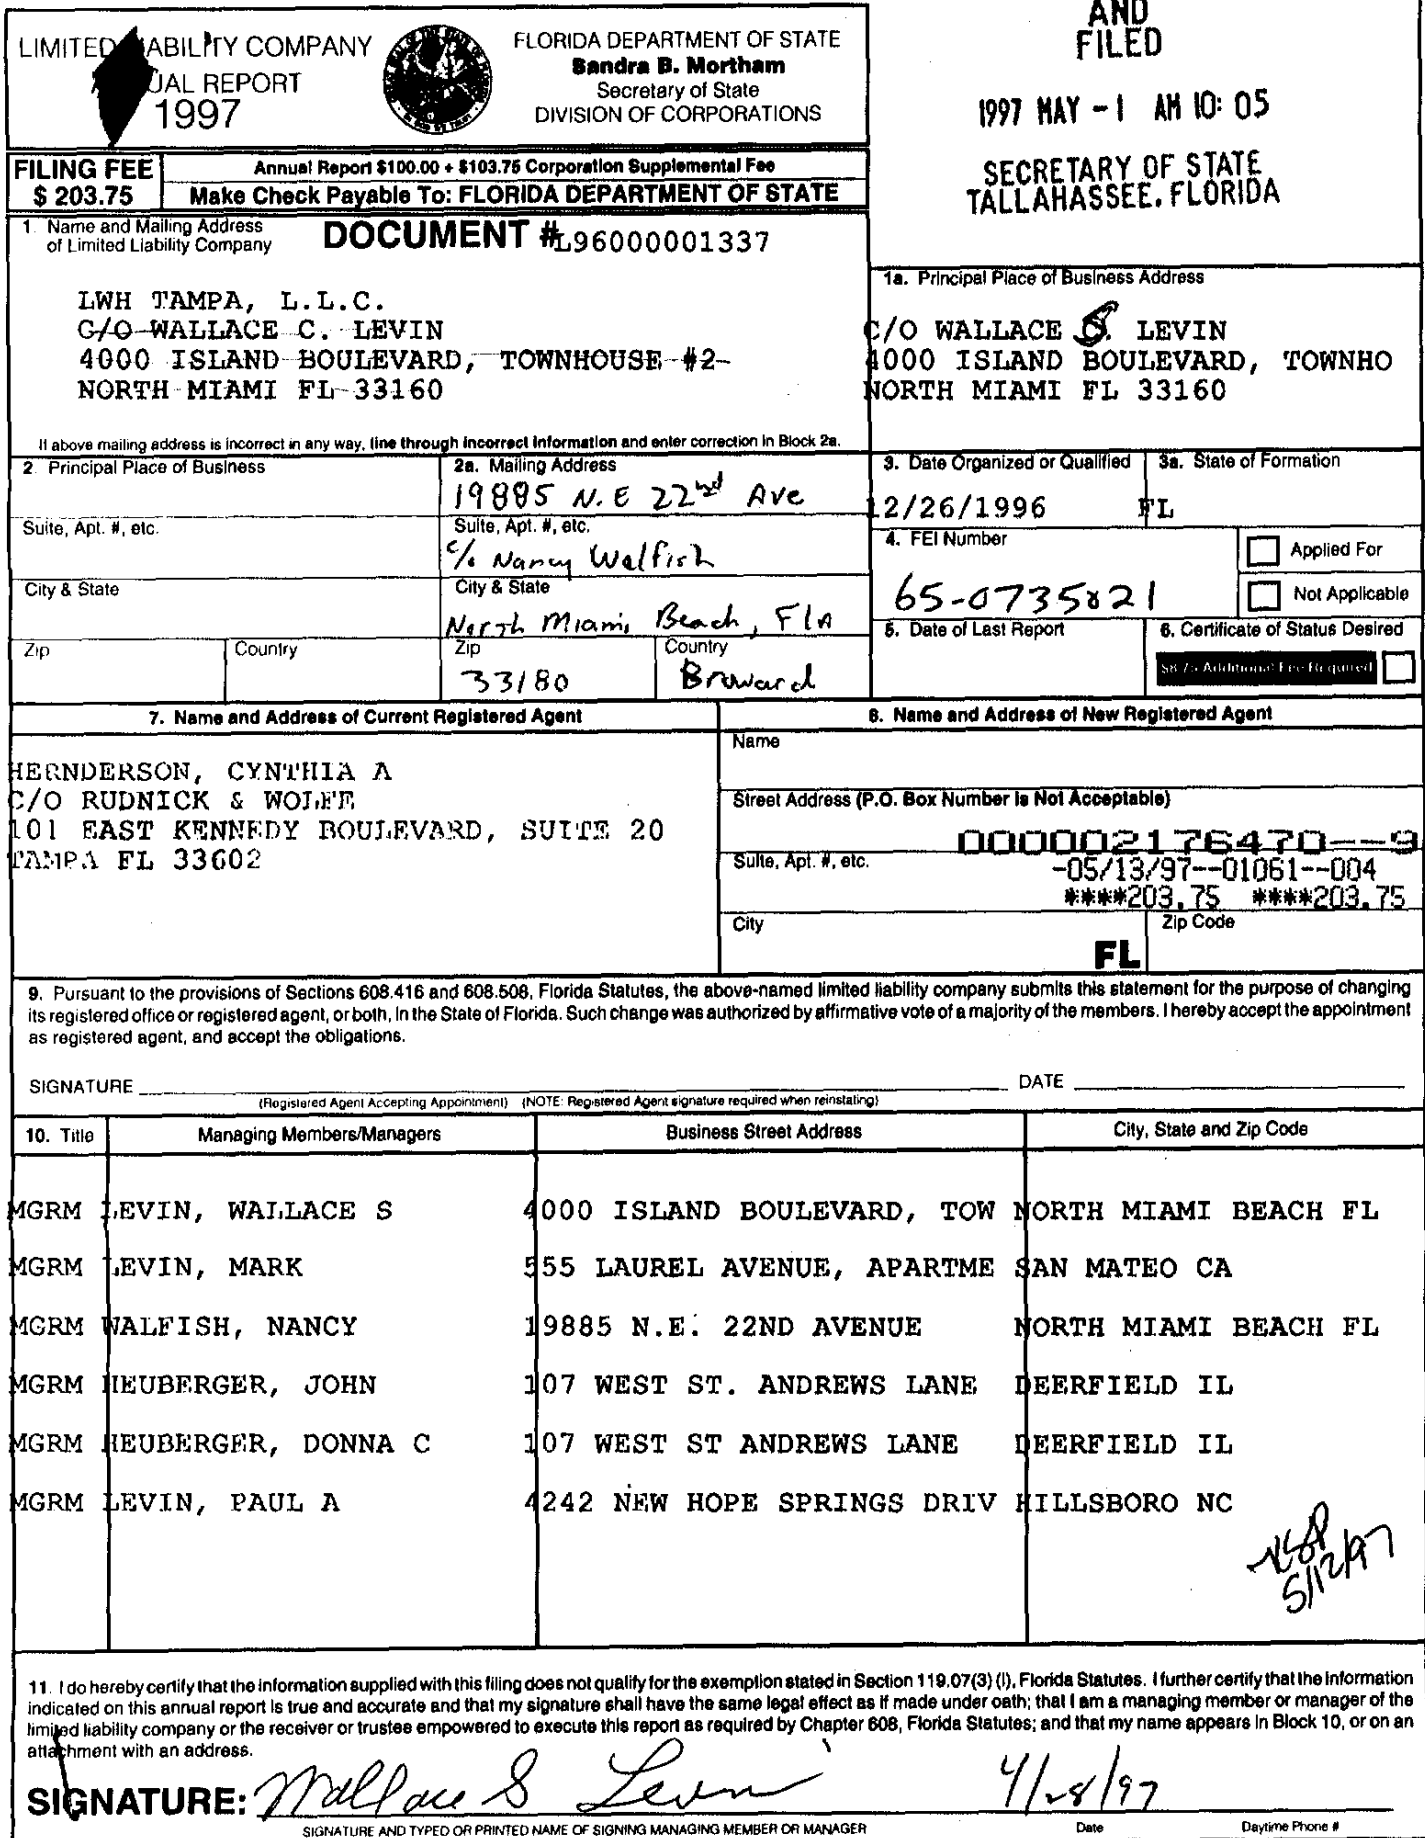 LIMITED ABILITY COMPANY
UAL REPORT
1997
FLORIDA DEPARTMENT OF STATE
Sandra B. Mortham
Secretary of State
DIVISION OF CORPORATIONS
AND
FILED
1997 MAY -1 AM 10:05
SECRETARY OF STATE
TALLAHASSEE, FLORIDA
FILING FEE
$ 203.75
Annual Report $100.00 + $103.75 Corporation Supplemental Fee
Make Check Payable To: FLORIDA DEPARTMENT OF STATE
1. Name and Mailing Address
of Limited Liability Company
DOCUMENT #L96000001337
LWH TAMPA, L.L.C.
C/O WALLACE C. LEVIN
4000 ISLAND BOULEVARD, TOWNHOUSE #2
NORTH MIAMI FL 33160
If above mailing address is incorrect in any way, line through incorrect information and enter correction in Block 2a.
1a. Principal Place of Business Address
C/O WALLACE S. LEVIN
4000 ISLAND BOULEVARD, TOWNHO
NORTH MIAMI FL 33160
2. Principal Place of Business
2a. Mailing Address
19885 N.E 22nd Ave
Suite, Apt. #, etc.
Suite, Apt. #, etc.
c/o Nancy Walfish
City & State
City & State
North Miami Beach, FlA
Zip
Country
Zip
33180
Country
Broward
3. Date Organized or Qualified
12/26/1996
3a. State of Formation
FL
4. FEI Number
65-0735821
Applied For
Not Applicable
5. Date of Last Report
6. Certificate of Status Desired
$8.75 Additional Fee Required
7. Name and Address of Current Registered Agent
HERNDERSON, CYNTHIA A
C/O RUDNICK & WOLFE
101 EAST KENNEDY BOULEVARD, SUITE 20
TAMPA FL 33602
8. Name and Address of New Registered Agent
Name
Street Address (P.O. Box Number is Not Acceptable)
000002176470--9
Suite, Apt. #, etc.
-05/13/97--01061--004
****203.75 ****203.75
City
FL
Zip Code
9. Pursuant to the provisions of Sections 608.416 and 608.508, Florida Statutes, the above-named limited liability company submits this statement for the purpose of changing
its registered office or registered agent, or both, in the State of Florida. Such change was authorized by affirmative vote of a majority of the members. I hereby accept the appointment
as registered agent, and accept the obligations.
SIGNATURE
DATE
(Registered Agent Accepting Appointment) (NOTE: Registered Agent signature required when reinstating)
10. Title Managing Members/Managers Business Street Address City, State and Zip Code
MGRM LEVIN, WALLACE S 4000 ISLAND BOULEVARD, TOW NORTH MIAMI BEACH FL
MGRM LEVIN, MARK 555 LAUREL AVENUE, APARTME SAN MATEO CA
MGRM WALFISH, NANCY 19885 N.E. 22ND AVENUE NORTH MIAMI BEACH FL
MGRM HEUBERGER, JOHN 107 WEST ST. ANDREWS LANE DEERFIELD IL
MGRM HEUBERGER, DONNA C 107 WEST ST ANDREWS LANE DEERFIELD IL
MGRM LEVIN, PAUL A 4242 NEW HOPE SPRINGS DRIV HILLSBORO NC
5/12/97
11. I do hereby certify that the information supplied with this filing does not qualify for the exemption stated in Section 119.07(3) (i), Florida Statutes. I further certify that the information
indicated on this annual report is true and accurate and that my signature shall have the same legal effect as if made under oath; that I am a managing member or manager of the
limited liability company or the receiver or trustee empowered to execute this report as required by Chapter 608, Florida Statutes; and that my name appears in Block 10, or on an
attachment with an address.
SIGNATURE: Wallace S Levin 4/28/97
SIGNATURE AND TYPED OR PRINTED NAME OF SIGNING MANAGING MEMBER OR MANAGER Date Daytime Phone #